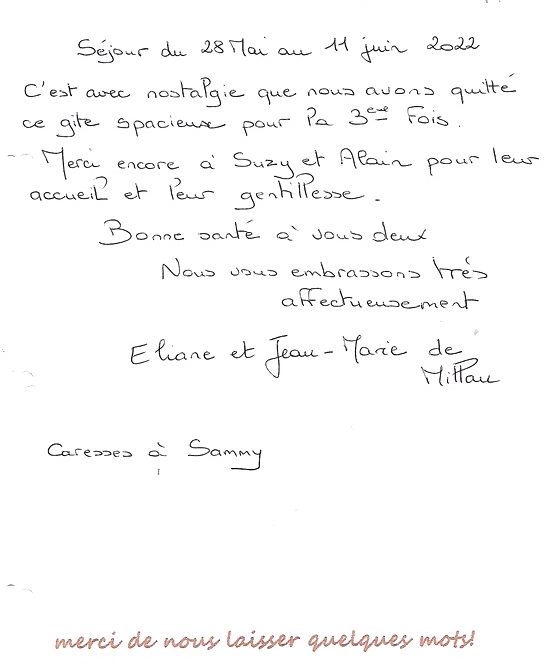 Séjour du 28 Mai au 11 juin 2022
C'est avec nostalgie que nous avons quitté
ce gite spacieux pour la 3eme Fois.
Merci encore à Suzy et Alain pour leur
accueil et leur gentillesse.
Bonne santé à vous deux
Nous vous embrassons très
affectueusement
Eliane et Jean-Marie de
Millau
Caresses à Sammy
merci de nous laisser quelques mots!